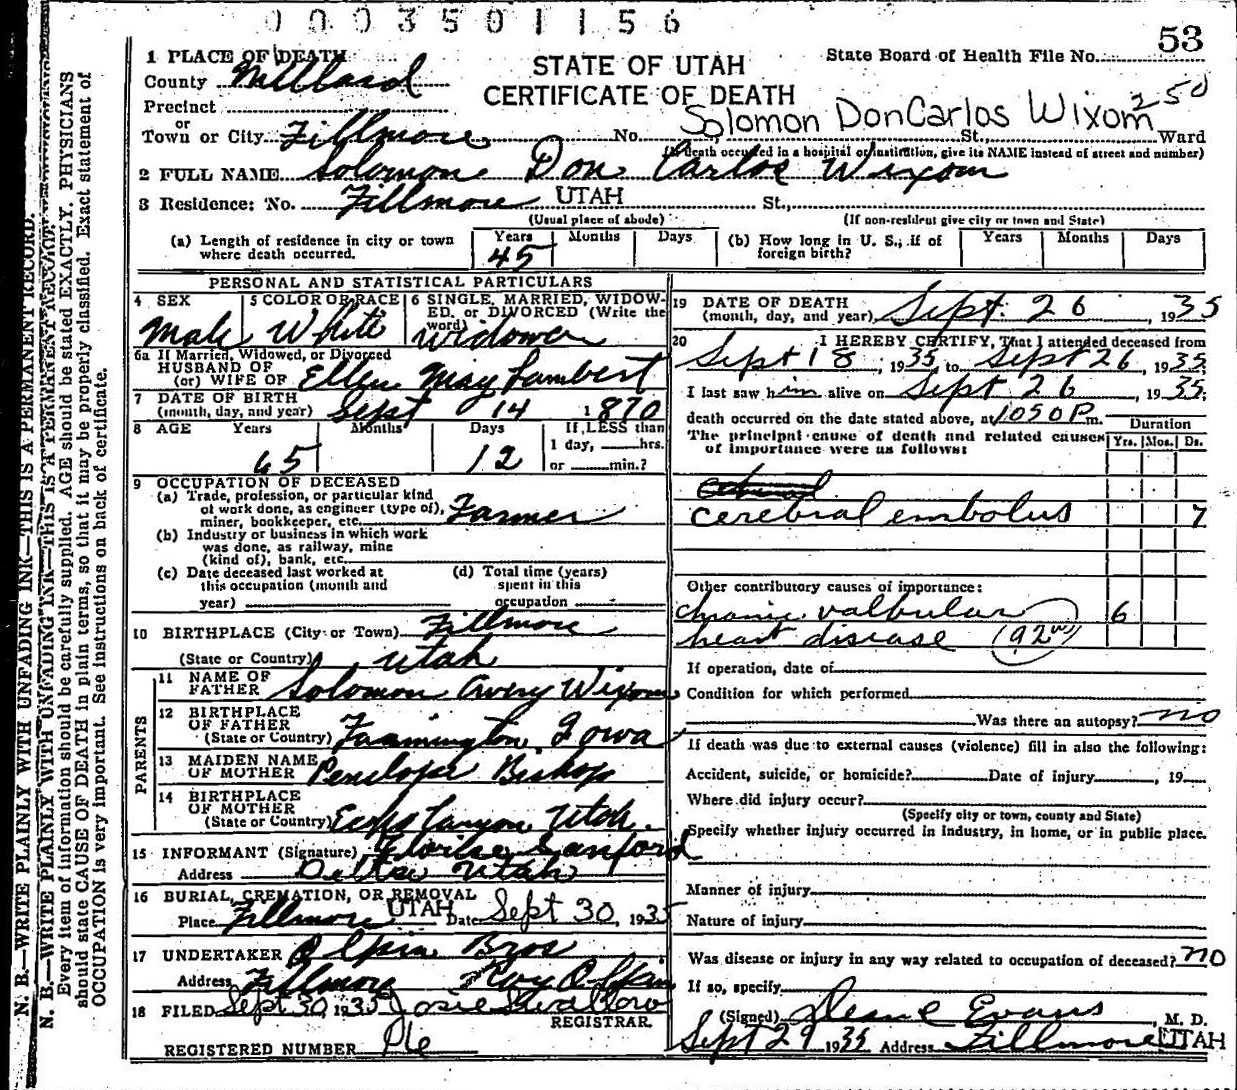 0003501156
53
1 PLACE OF DEATH
STATE OF UTAH
CERTIFICATE OF DEATH
State Board of Health File No.
County Millard
Precinct
or
Solomon DonCarlos Wixom 250
Town or City Fillmore No. St., Ward
(If death occurred in a hospital or institution, give its NAME instead of street and number)
2 FULL NAME Solomon Don Carlos Wixom
3 Residence: No. Fillmore UTAH St.,
(Usual place of abode) (If non-resident give city or town and State)
(a) Length of residence in city or town where death occurred. Years 45 Months Days
(b) How long in U. S., if of foreign birth? Years Months Days
PERSONAL AND STATISTICAL PARTICULARS
4 SEX Male
5 COLOR OR RACE White
6 SINGLE, MARRIED, WIDOWED, or DIVORCED (Write the word) Widower
6a If Married, Widowed, or Divorced
HUSBAND OF
(or) WIFE OF Ellen May Lambert
7 DATE OF BIRTH
(month, day, and year) Sept 14 1870
8 AGE Years 65 Months Days 12 If LESS than 1 day, hrs. or min.?
9 OCCUPATION OF DECEASED
(a) Trade, profession, or particular kind
of work done, as engineer (type of),
miner, bookkeeper, etc. Farmer
(b) Industry or business in which work
was done, as railway, mine
(kind of), bank, etc.
(c) Date deceased last worked at
this occupation (month and
year)
(d) Total time (years)
spent in this
occupation
10 BIRTHPLACE (City or Town) Fillmore
(State or Country) Utah
PARENTS
11 NAME OF
FATHER Solomon Avery Wixom
12 BIRTHPLACE
OF FATHER
(State or Country) Farmington, Iowa
13 MAIDEN NAME
OF MOTHER Penelope Bishop
14 BIRTHPLACE
OF MOTHER
(State or Country) Echo Canyon Utah.
15 INFORMANT (Signature) Sanford
Address Delta Utah
16 BURIAL, CREMATION, OR REMOVAL
Place Fillmore UTAH Date Sept 30, 1935
17 UNDERTAKER Olpin Bros
Address Fillmore Roy Olpin
18 FILED Sept 30, 1935 Josie Swallow
REGISTRAR.
REGISTERED NUMBER
19 DATE OF DEATH
(month, day, and year) Sept. 26, 1935
20 I HEREBY CERTIFY, That I attended deceased from
Sept 18, 1935, to Sept 26, 1935.
I last saw him alive on Sept 26, 1935;
death occurred on the date stated above, at 1050 P m.
The principal cause of death and related causes
of importance were as follows:
Duration
Yrs. Mos. Ds.
cerebral embolus 7
Other contributory causes of importance:
chronic valbular 6
heart disease (92w)
If operation, date of
Condition for which performed
Was there an autopsy? no
If death was due to external causes (violence) fill in also the following:
Accident, suicide, or homicide? Date of injury , 19
Where did injury occur?
(Specify city or town, county and State)
Specify whether injury occurred in industry, in home, or in public place.
Manner of injury
Nature of injury
Was disease or injury in any way related to occupation of deceased? no
If so, specify
(Signed) Deane Evans, M. D.
Sept 29 1935 Address Fillmore UTAH
N. B.—WRITE PLAINLY WITH UNFADING INK—THIS IS A PERMANENT RECORD.
N. B.—WRITE PLAINLY WITH UNFADING INK—THIS IS A PERMANENT RECORD.
Every item of information should be carefully supplied. AGE should be stated EXACTLY. PHYSICIANS
should state CAUSE OF DEATH in plain terms, so that it may be properly classified. Exact statement of
OCCUPATION is very important. See instructions on back of certificate.